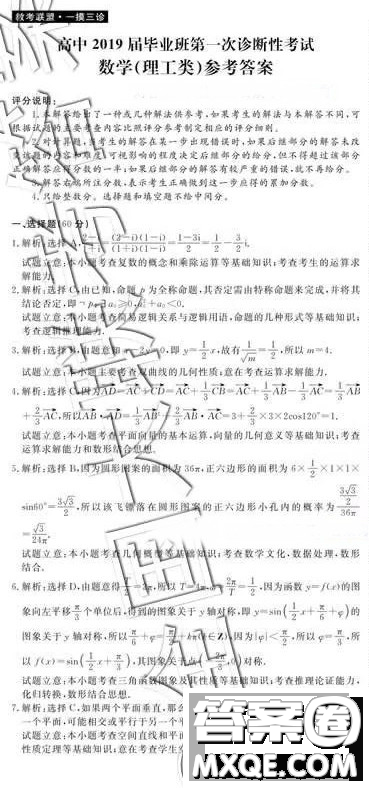 教考联盟·一摸三诊
高中2019届毕业班第一次诊断性考试
数学(理工类)参考答案
评分说明:
1.本解答给出了一或几种解法供参考,如果考生的解法与本解答不同,可
根据试题的主要考查内容比照评分参考制定相应的评分细则。
2.对计算题,当考生的解答在某一步出现错误时,如果后继部分的解答未改
变该题的内容和难度,可视影响的程度决定后继部分的给分,但不得超过该部分
正确解答应得分数的一半;如果后继部分的解答有较严重的错误,就不再给分。
3.解答右端所注分数,表示考生正确做到这一步应得的累加分数。
4.只给整数分。选择题和填空题不给中间分。
一、选择题(60分)
1.解析:选择A, (2-i)(1-i)/(1+i)(1-i)=(1-3i)/2=1/2-3/2i.
试题立意:本小题考查复数的概念和乘除运算等基础知识;考查考生的运算求
解能力.
2.解析:选择C,由已知,命题p为全称命题,其否定需由特称命题来完成,并将其
结论否定,即
试题立意:本小题考查简易逻辑关系与逻辑用语,命题的几种形式等基础知识;
考查逻辑推理能力.
3.解析:选择 由题意知x-2y=0,即y=1/2x,故有1/√m=1/2,所以m=4.
试题立意:本小题主要考查双曲线的几何性质;意在考查运算求解能力.
4.解析:选择 因为AD=AC+CD=AC+1/3CB=AC+1/3AB-1/3AC=1/3AB
+2/3AC,所以AB·AD=1/3AB²+2/3AB·AC=3+2/3×3×2cos120°=1.
试题立意:本小题考查平面向量的基本运算,向量的几何意义等基础知识;考查
运算求解能力和数形结合思想.
5.解析:选择B,因为圆形图案的面积为36π,正六边形的面积为6×1/2×1×1×
sin60°=3√3/2,所以该飞镖落在圆形图案的正六边形小孔内的概率为(3√3/2)/36π
=√3/24π.
试题立意:本小题考查几何概型等基础知识;考查数学文化,数据处理,数形
结合.
6.解析:选择D,由题意得 所以T=4π,ω=2π/T=1/2,因为函数y=f(x)的图
象向左平移π/3个单位后,得到的图象关于y轴对称,即y=sin(1/2x+π/6+φ)的
图象关于y轴对称,所以π/6+φ=π/2+kπ(k∈Z),因为|φ|<π/2,所以φ=π/3,所
以f(x)=sin(1/2x+π/3),其图象关于点(-2π/3,0)对称.
试题立意:本小题考查三角函数图象及其性质等基础知识;考查推理论证能力,
化归转换,数形结合思想.
7.解析:选择C,如果两个平面垂直,那么
一个平面,可能相交或平行于另一个平
试题立意:本小题考查空间直线和平面
性质定理等基础知识;意在考查学生
答案圈
MXQE.COM